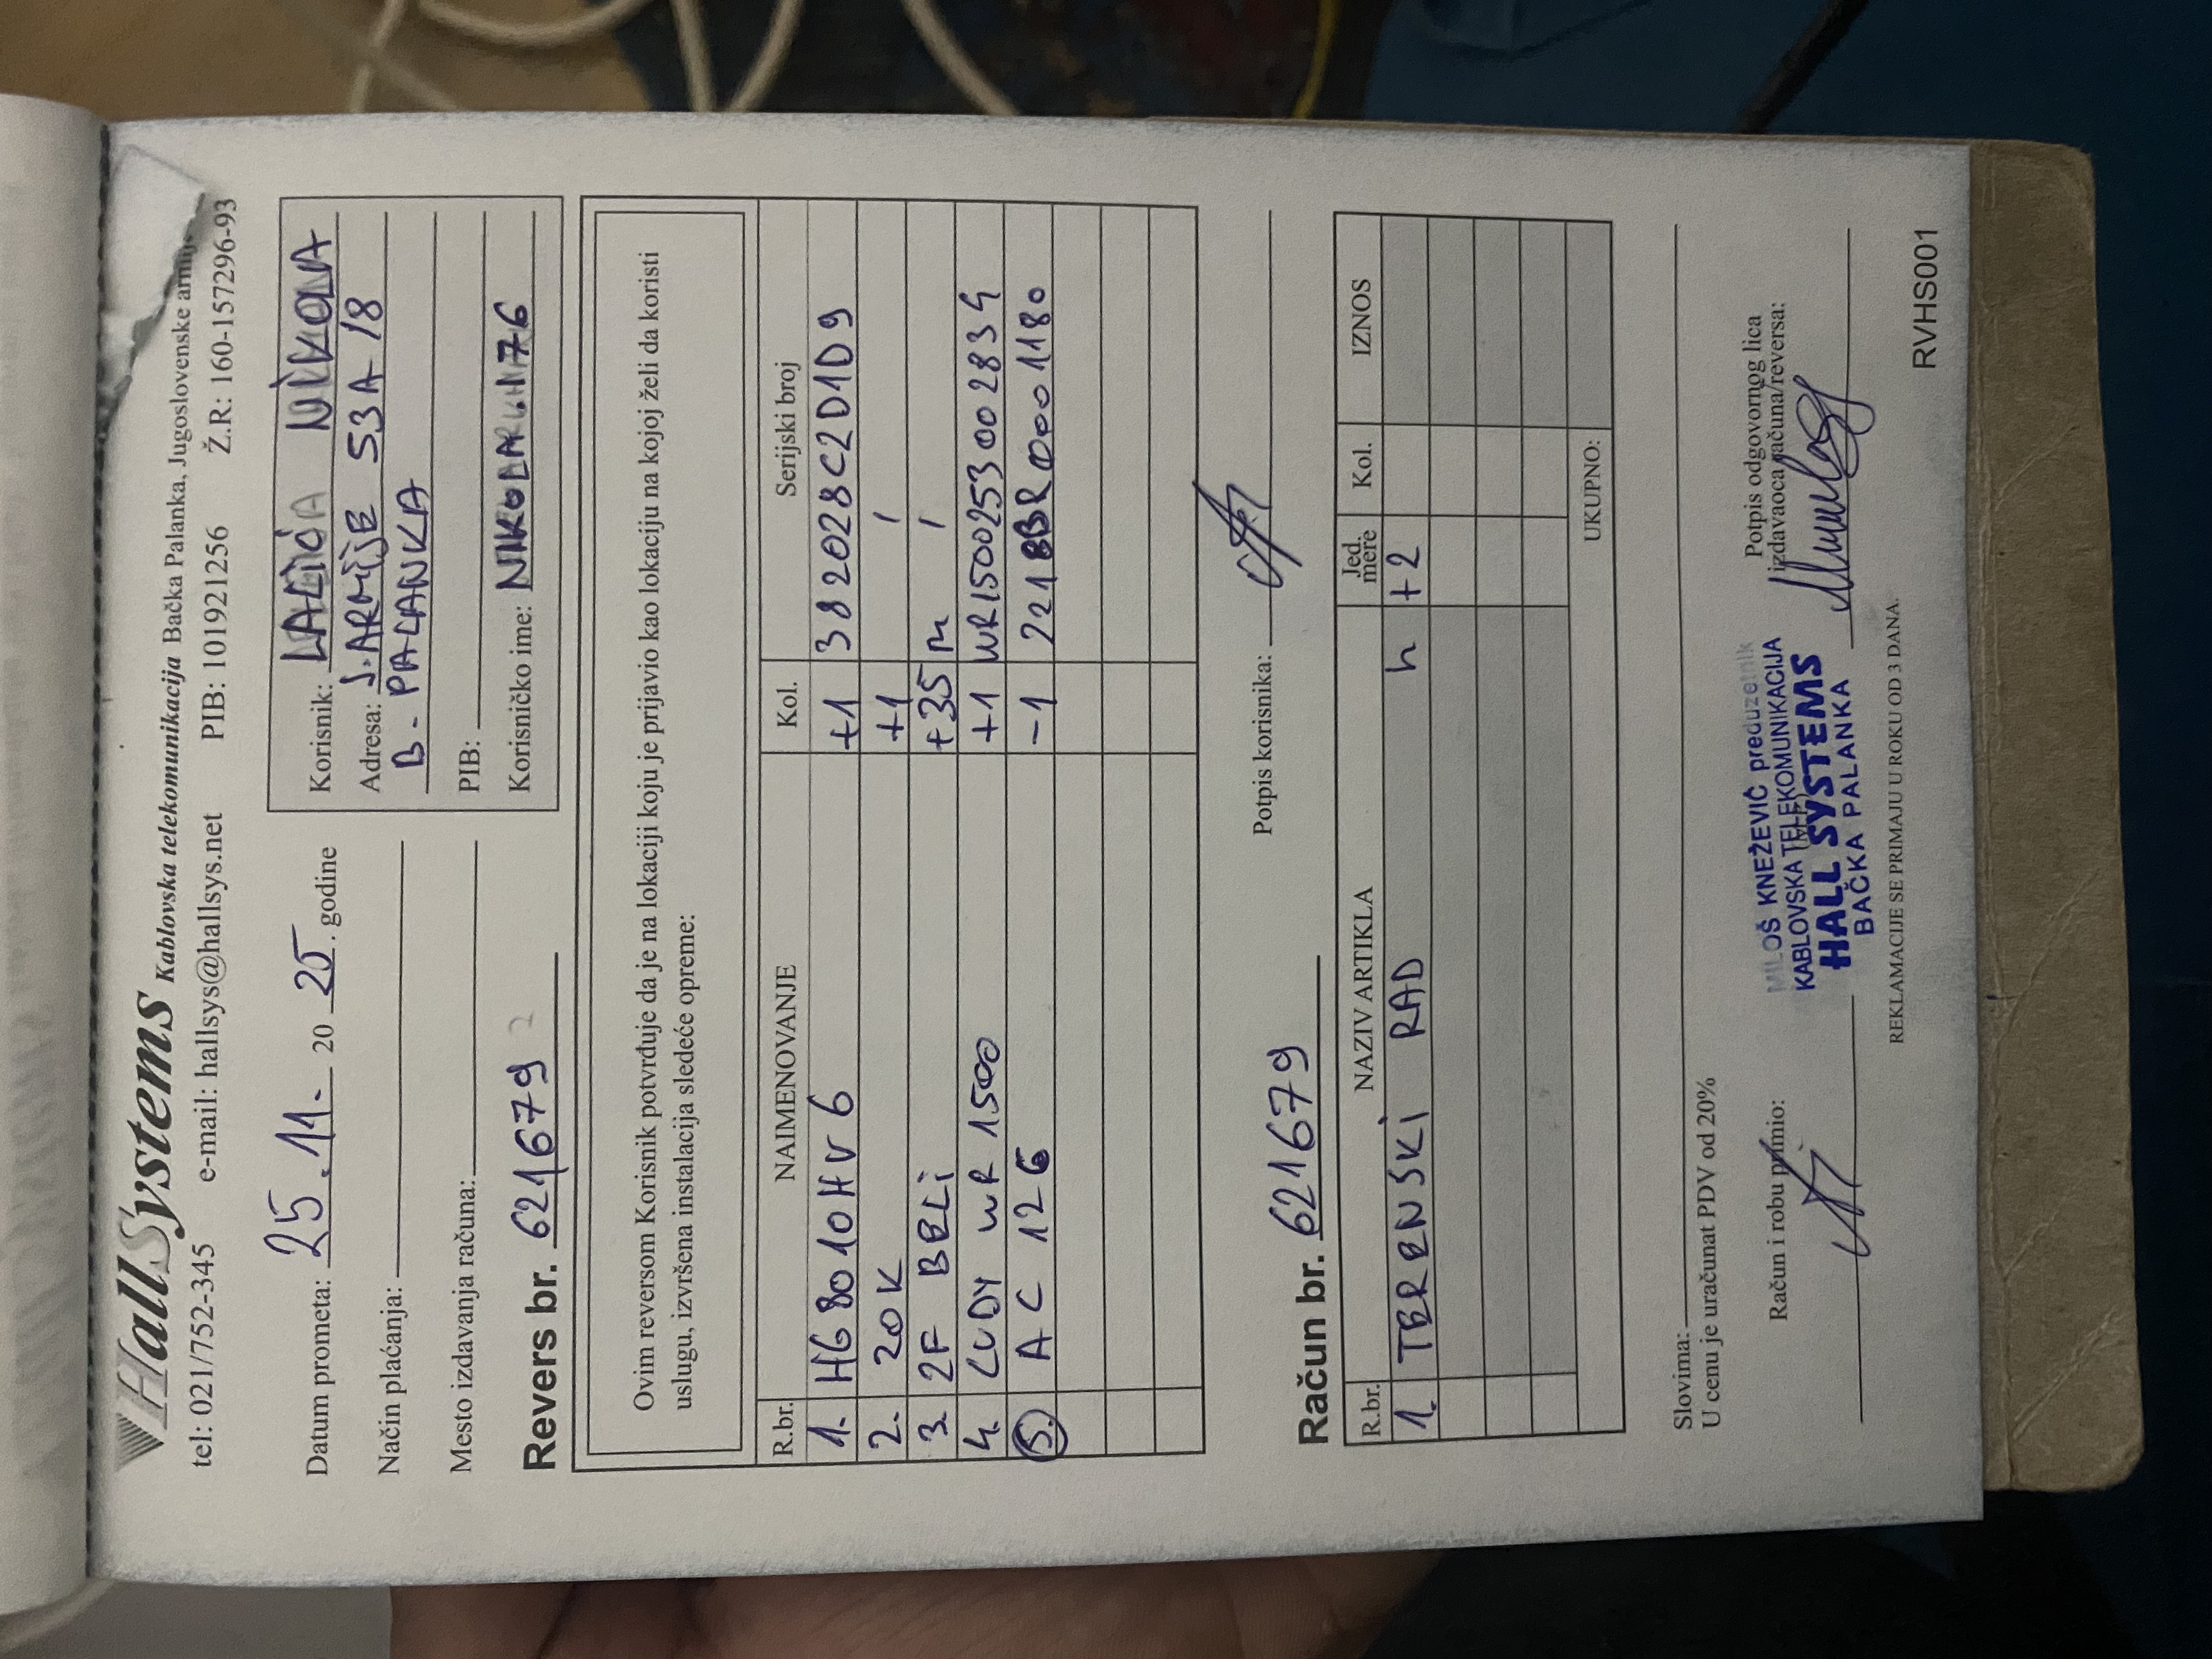 HallSystems Kablovska telekomunikacija Bačka Palanka, Jugoslovenske armije
tel: 021/752-345 e-mail: hallsys@hallsys.net PIB: 101921256 Ž.R: 160-157296-93
Datum prometa: 25.11. 20 25. godine
Način plaćanja:
Mesto izdavanja računa:
Revers br. 621679
Korisnik: NIKOLA
Adresa: J. ARMIJE 53A 18
B. PALANKA
PIB:
Korisničko ime: NIKOLA.176
Ovim reversom Korisnik potvrđuje da je na lokaciji koju je prijavio kao lokaciju na kojoj želi da koristi
uslugu, izvršena instalacija sledeće opreme:
R.br. NAIMENOVANJE Kol. Serijski broj
1. HG8010HV6 +1 382028C2D1D9
2. 20K +1 /
3. 2F BELI +35 m /
4. CUDY WR1500 +1 WR1500253002834
5. AC 126 -1 2218BR0001180
Potpis korisnika:
Račun br. 621679
R.br. NAZIV ARTIKLA Jed. mere Kol. IZNOS
1. TERENSKI RAD h +2
UKUPNO:
Slovima:
U cenu je uračunat PDV od 20%
Račun i robu primio:
MILOŠ KNEŽEVIĆ preduzetnik
KABLOVSKA TELEKOMUNIKACIJA
HALL SYSTEMS
BAČKA PALANKA
Potpis odgovornog lica
izdavaoca računa/reversa:
REKLAMACIJE SE PRIMAJU U ROKU OD 3 DANA.
RVHS001